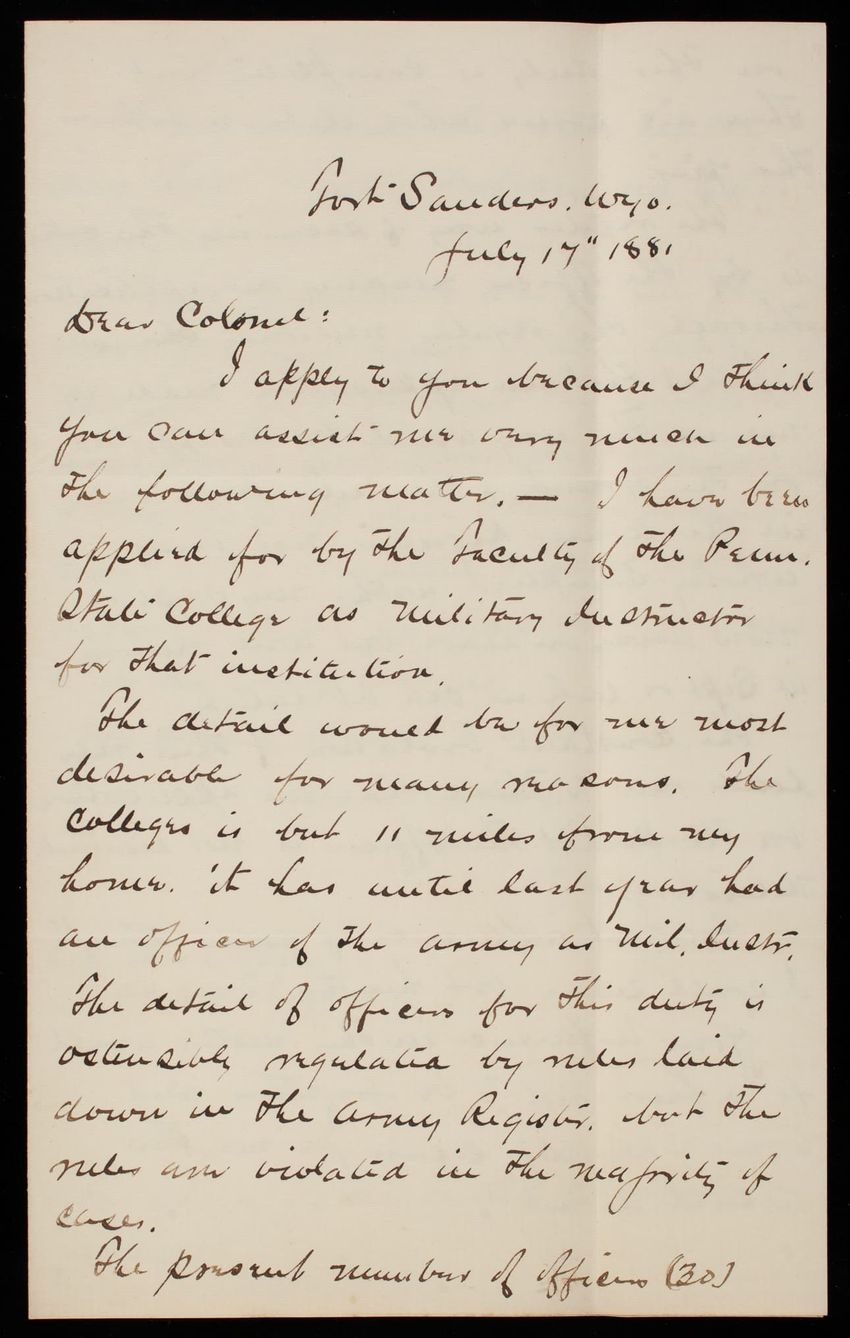 Fort Sanders. Wyo.
July 17" 1881
Dear Colonel:
I apply to you because I think
you can assist me very much in
the following matter. — I have been
applied for by the Faculty of the Penn.
State College as Military Instructor
for that institution.
The detail would be for me most
desirable for many reasons. The
College is but 11 miles from my
home. it has until last year had
an officer of the army as Mil. Instr.
The detail of officers for this duty is
ostensibly regulated by rules laid
down in the Army Register. but the
rules are violated in the majority of
cases.
The present number of officers (30)